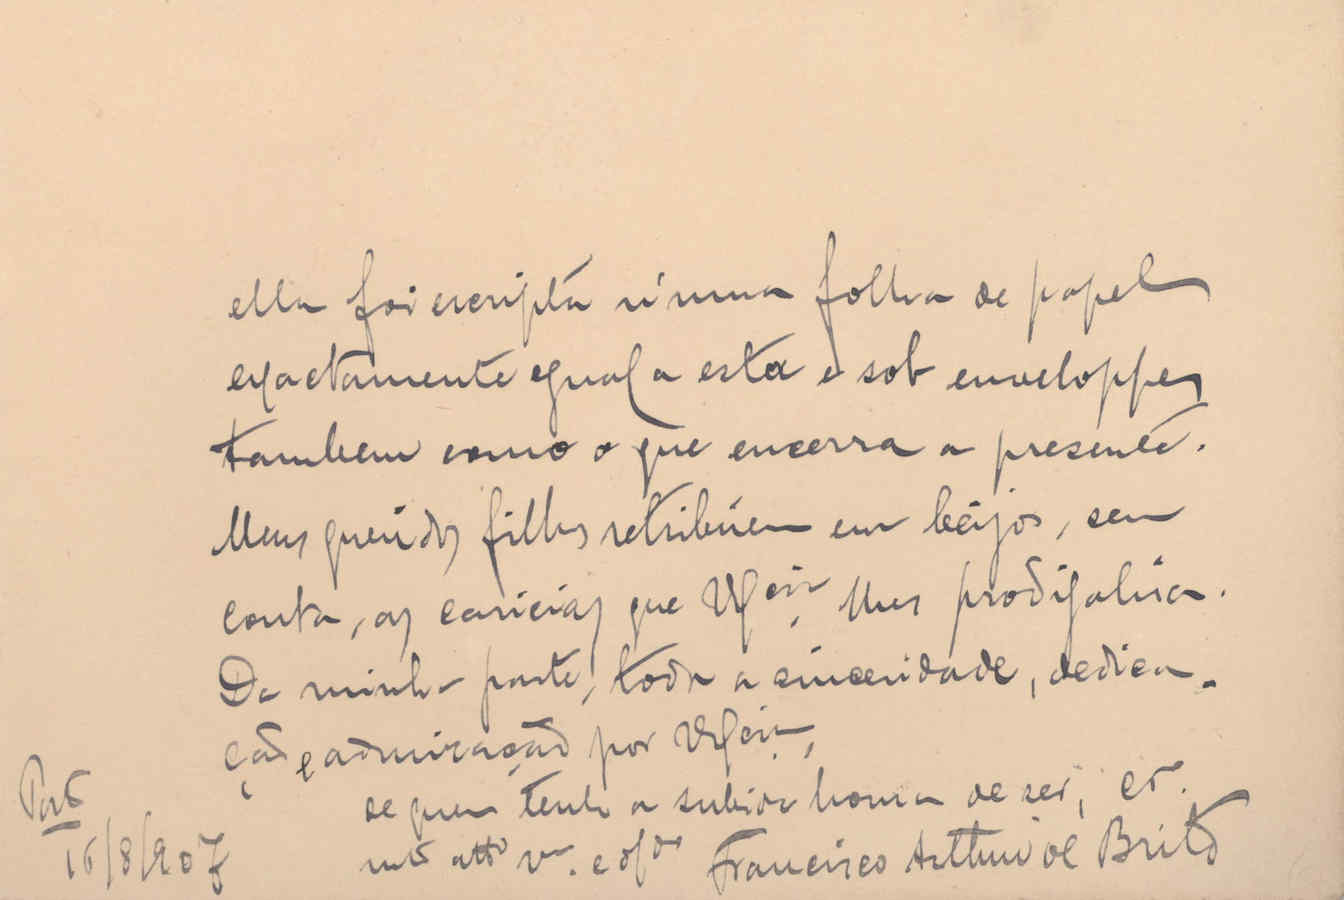 ella foi escripta n'uma folha de papel
exactamente egual a esta e sob enveloppes
tambem como o que encerra a presente.
Meus queridos filhos retribúem em beijos, sem
conta, as caricias que V Ex.cia lhes prodigalisa.
Da minha parte, toda a sinceridade, dedica-
ção e admiração por V Ex.cia,
de quem tenho a subida honra de ser,
m.to att.o v.or e
Francisco Arthur de Brito
Porto
16/8/907